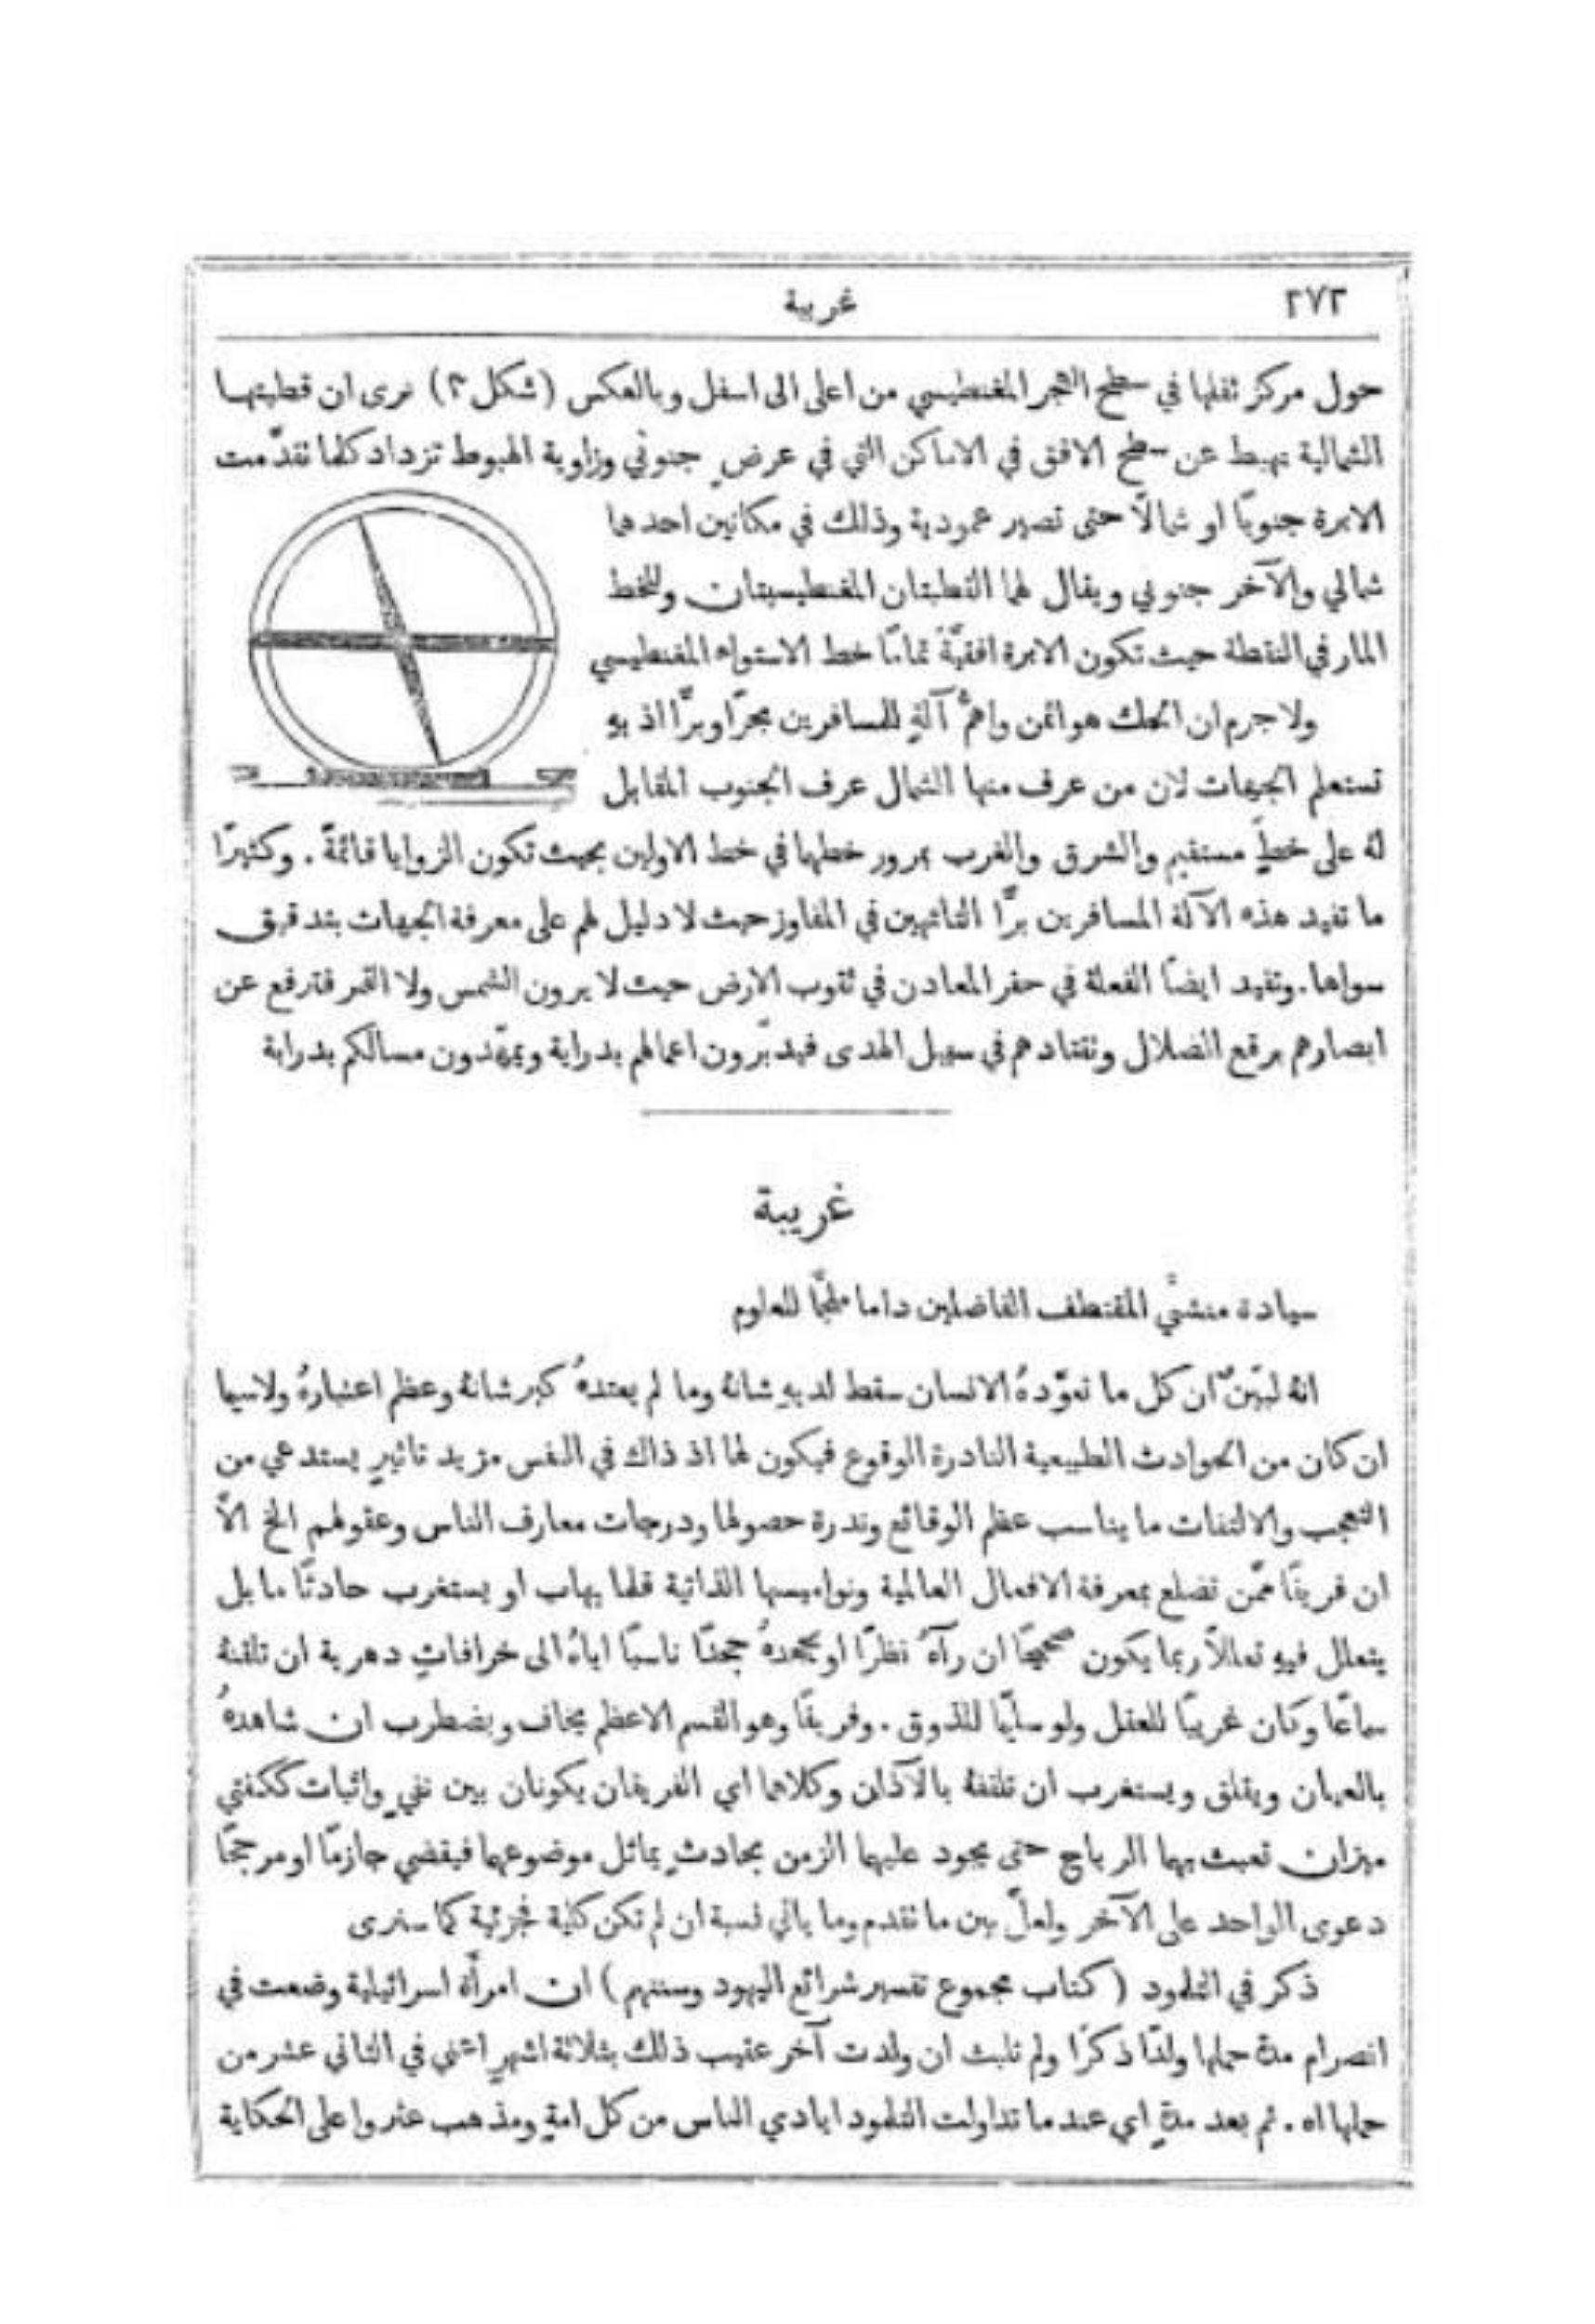 ٢٧٢
غريبة
حول مركز ثقلها في سطح الهجر المغنطيسي من اعلى الى اسفل وبالعكس (شكل ٣) نرى ان قطبيتها
الشمالية تهبط عن سطح الافق في الاماكن التي في عرضٍ جنوبي وزاوية الهبوط تزداد كلما تقدَّمت
الابرة جنوبًا او شمالًا حتى تصير عمودية وذلك في مكانين احدهما
شمالي والآخر جنوبي ويقال لهما القطبتان المغنطيسيتان وللخط
المار في النقطة حيث تكون الابرة افقيَّةً تمامًا خط الاستواء المغنطيسي
ولا جرم ان الحك هو اثمن واهمُّ آلةٍ للمسافرين بحرًا وبرًّا اذ بهِ
تستعلم الجهات لان من عرف منها الشمال عرف الجنوب المقابل
لهُ على خطٍ مستقيم والشرق والغرب بمرور خطها في خط الاولين بحيث تكون الزوايا قائمةً. وكثيرًا
ما تفيد هذه الآلة المسافرين برًّا التائهين في المفاوز حيث لا دليل لهم على معرفة الجهات بتدقيق
سواها. وتفيد ايضًا الفعلة في حفر المعادن في ثقوب الارض حيث لا يرون الشمس ولا القمر فترفع عن
ابصارهم برقع الضلال وتقتادهم في سبيل الهدى فيدبّرون اعمالهم بدراية ويمهّدون مسالكم بدراية
غريبة
سيادة منشئَي المقتطف الفاضلين داما ملجًّا للعلوم
انهُ لبيّنٌ ان كل ما تعوَّدهُ الانسان سقط لديهِ شانهُ وما لم يعتدهُ كبر شانهُ وعظم اعتبارهُ ولاسيما
ان كان من الحوادث الطبيعية النادرة الوقوع فيكون لها اذ ذاك في النفس مزيد تاثيرٍ يستدعي من
التعجب والالتفات ما يناسب عظم الوقائع وندرة حصولها ودرجات معارف الناس وعقولهم الخ الَّا
ان فريقًا ممَّن تضلع بمعرفة الافعال العالمية ونواميسها الذاتية قلما يهاب او يستغرب حادثًا ما بل
يتعلل فيهِ تعاللًا ربما يكون صحيحًا ان رآهُ نظرًا او يجحدهُ جحدًا ناسبًا اياهُ الى خرافاتٍ دهرية ان تلقنهُ
سماعًا وكان غريبًا للعقل ولو سليًّا للذوق. وفريقًا وهو القسم الاعظم يخاف ويضطرب ان شاهدهُ
بالعيان ويقلق ويستغرب ان تلقنهُ بالآذان وكلاهما اي الفريقان يكونان بين نفيٍ واثبات ككفتي
ميزان تعبث بهما الرياح حتى يجود عليهما الزمن بحادثٍ يماثل موضوعهما فيقضي جازمًا او مرجحًا
دعوى الواحد على الآخر ولعلَّ بين ما تقدم وما ياتي نسبة ان لم تكن كلية فجزئية كما سترى
ذكر في التلمود (كتاب مجموع تفسير شرائع اليهود وسننهم) ان امرأَة اسرائيلية وضعت في
انصرام مدة حملها ولدًا ذكرًا ولم تلبث ان ولدت آخر عقيب ذلك بثلاثة اشهرٍ اعني في الثاني عشر من
حملها اه. ثم بعد مدةٍ اي عند ما تداولت التلمود ايادي الناس من كل امةٍ ومذهب عثروا على الحكاية